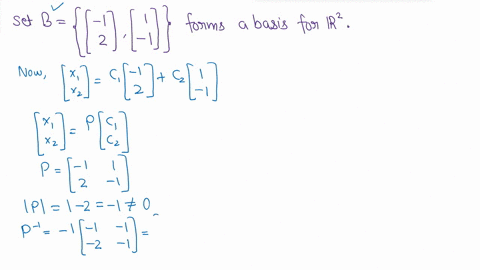 set B = { [-1 2], [1 -1] } forms a basis for ℝ².
Now, [x₁ x₂] = C₁[-1 2] + C₂[1 -1]
[x₁ x₂] = P[C₁ C₂]
P = [-1 1; 2 -1]
|P| = 1-2 = -1 ≠ 0
P⁻¹ = -1[-1 -1; -2 -1] =